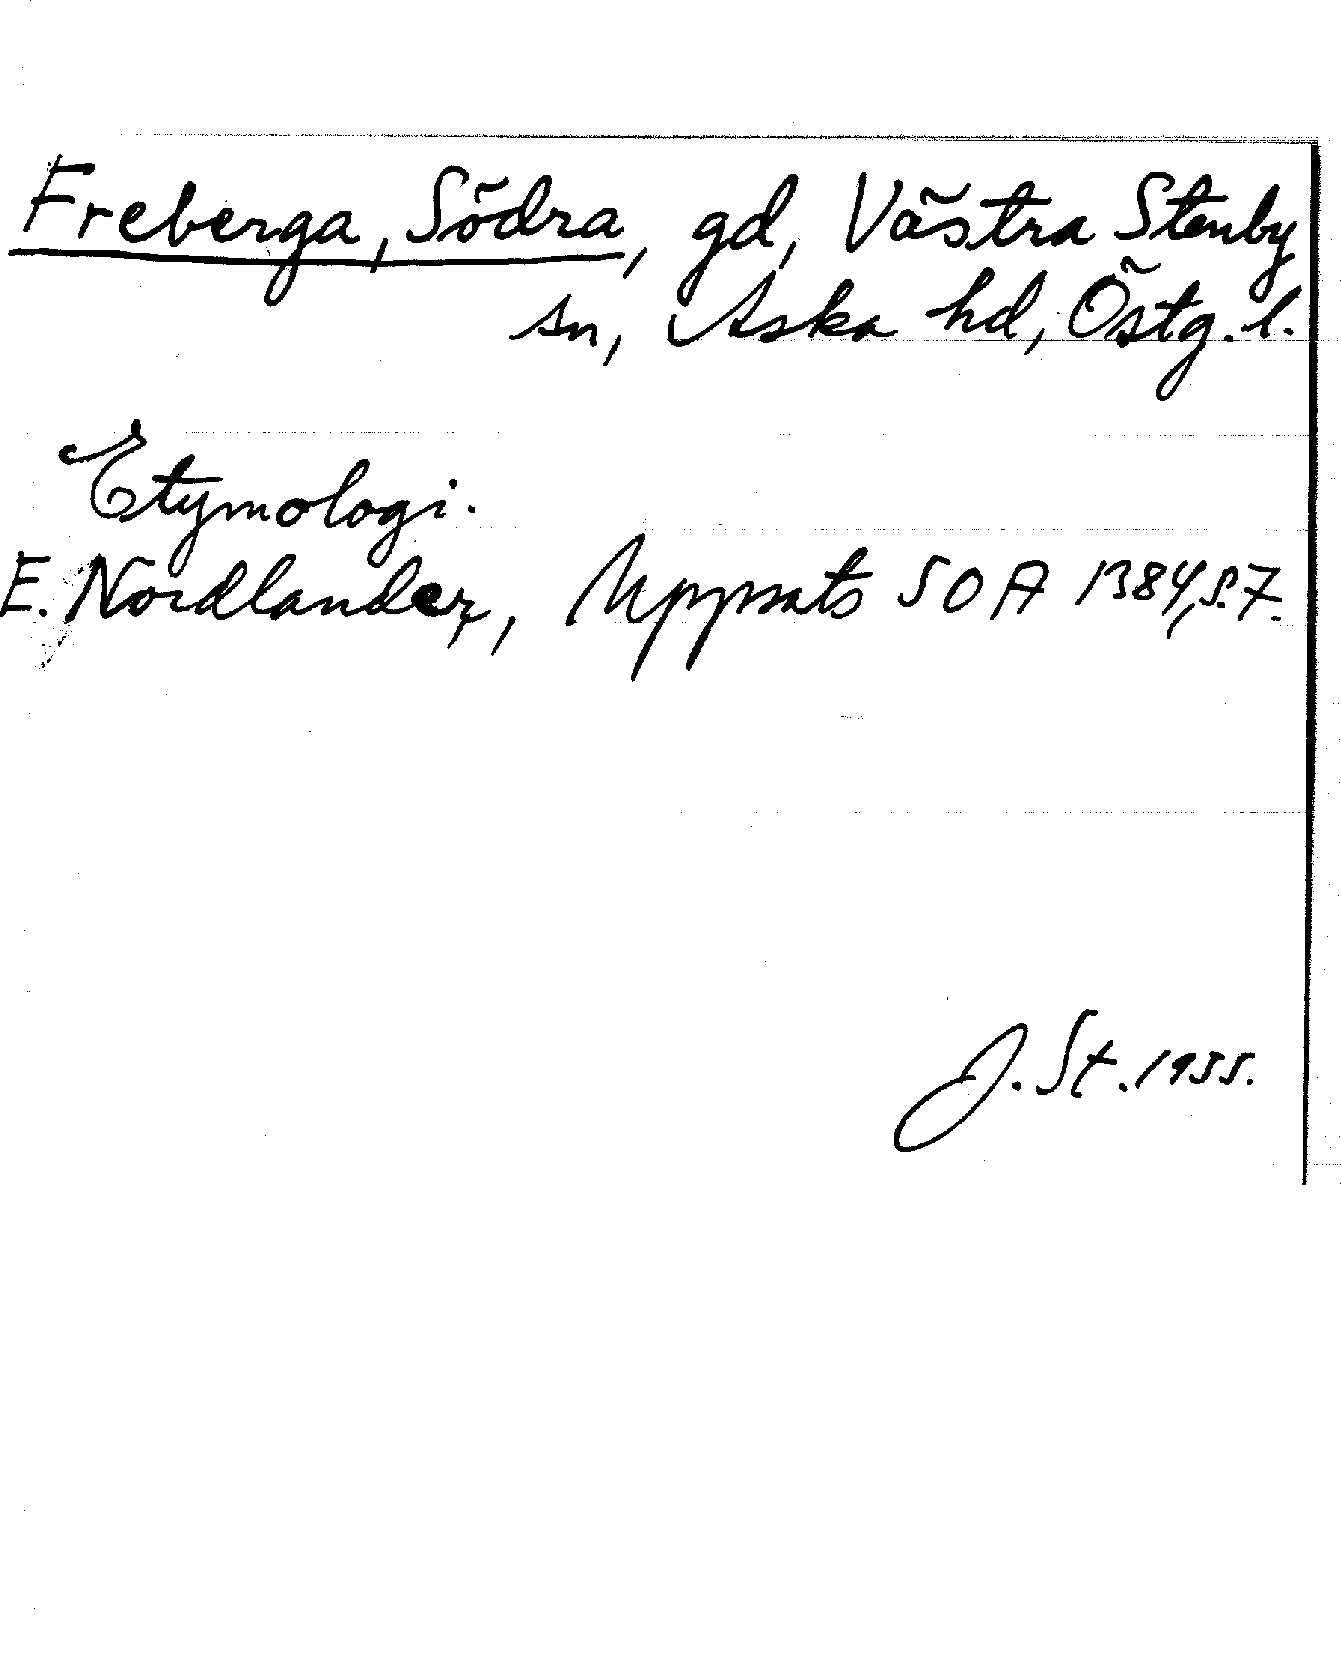 Freberga, Södra, gd, Västra Stenby
sn, Aska hd, Östg. l.
Etymologi.
E. Nordlander, Uppsats SOA 1384, s. 7.
J. St. 1955.